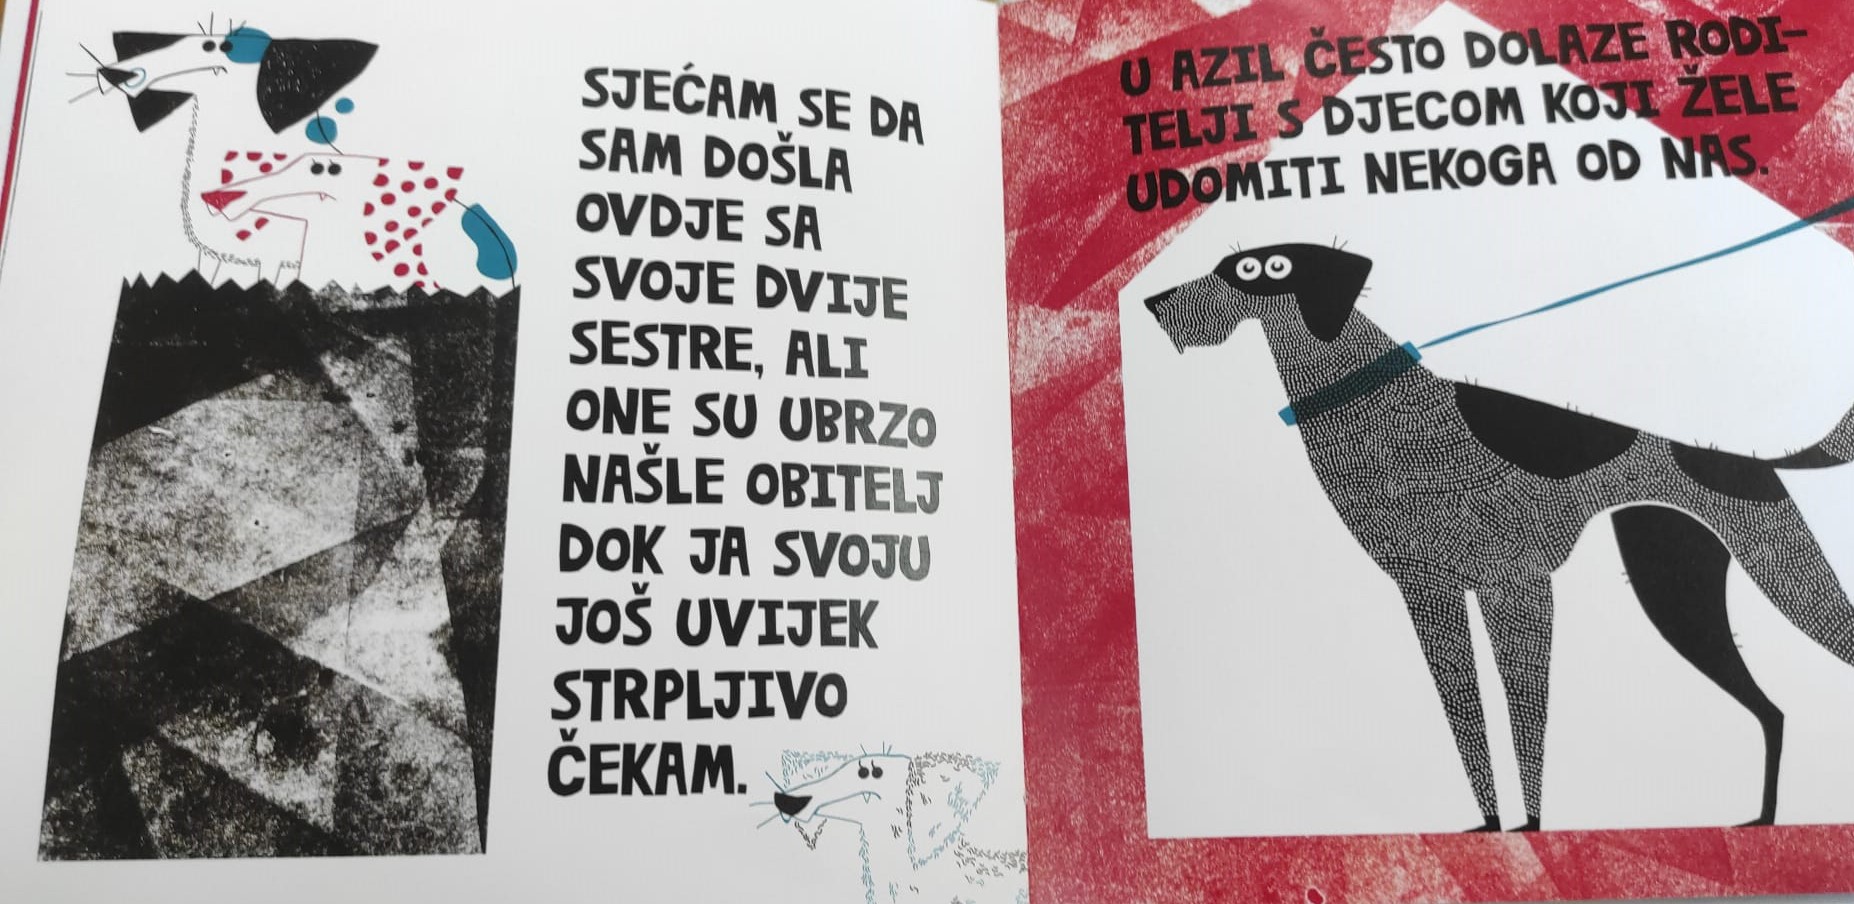 SJEĆAM SE DA
SAM DOŠLA
OVDJE SA
SVOJE DVIJE
SESTRE, ALI
ONE SU UBRZO
NAŠLE OBITELJ
DOK JA SVOJU
JOŠ UVIJEK
STRPLJIVO
ČEKAM.
U AZIL ČESTO DOLAZE RODI-
TELJI S DJECOM KOJI ŽELE
UDOMITI NEKOGA OD NAS.